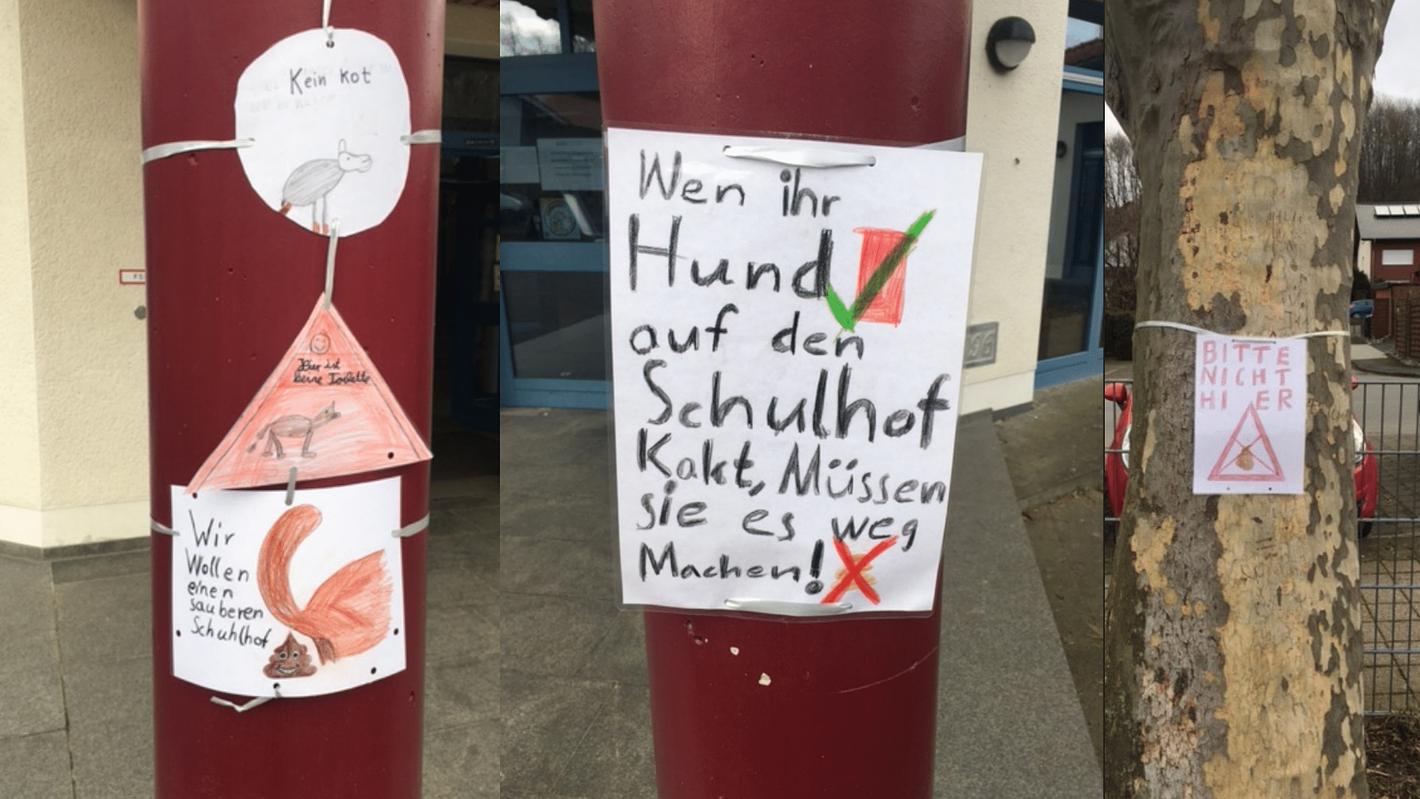 Kein kot
Hier ist
keine Toilette
Wir
Wollen
einen
sauberen
Schuhlhof
Wen ihr
Hund
auf den
Schulhof
Kakt, Müssen
sie es weg
Machen!
BITTE
NICHT
HIER